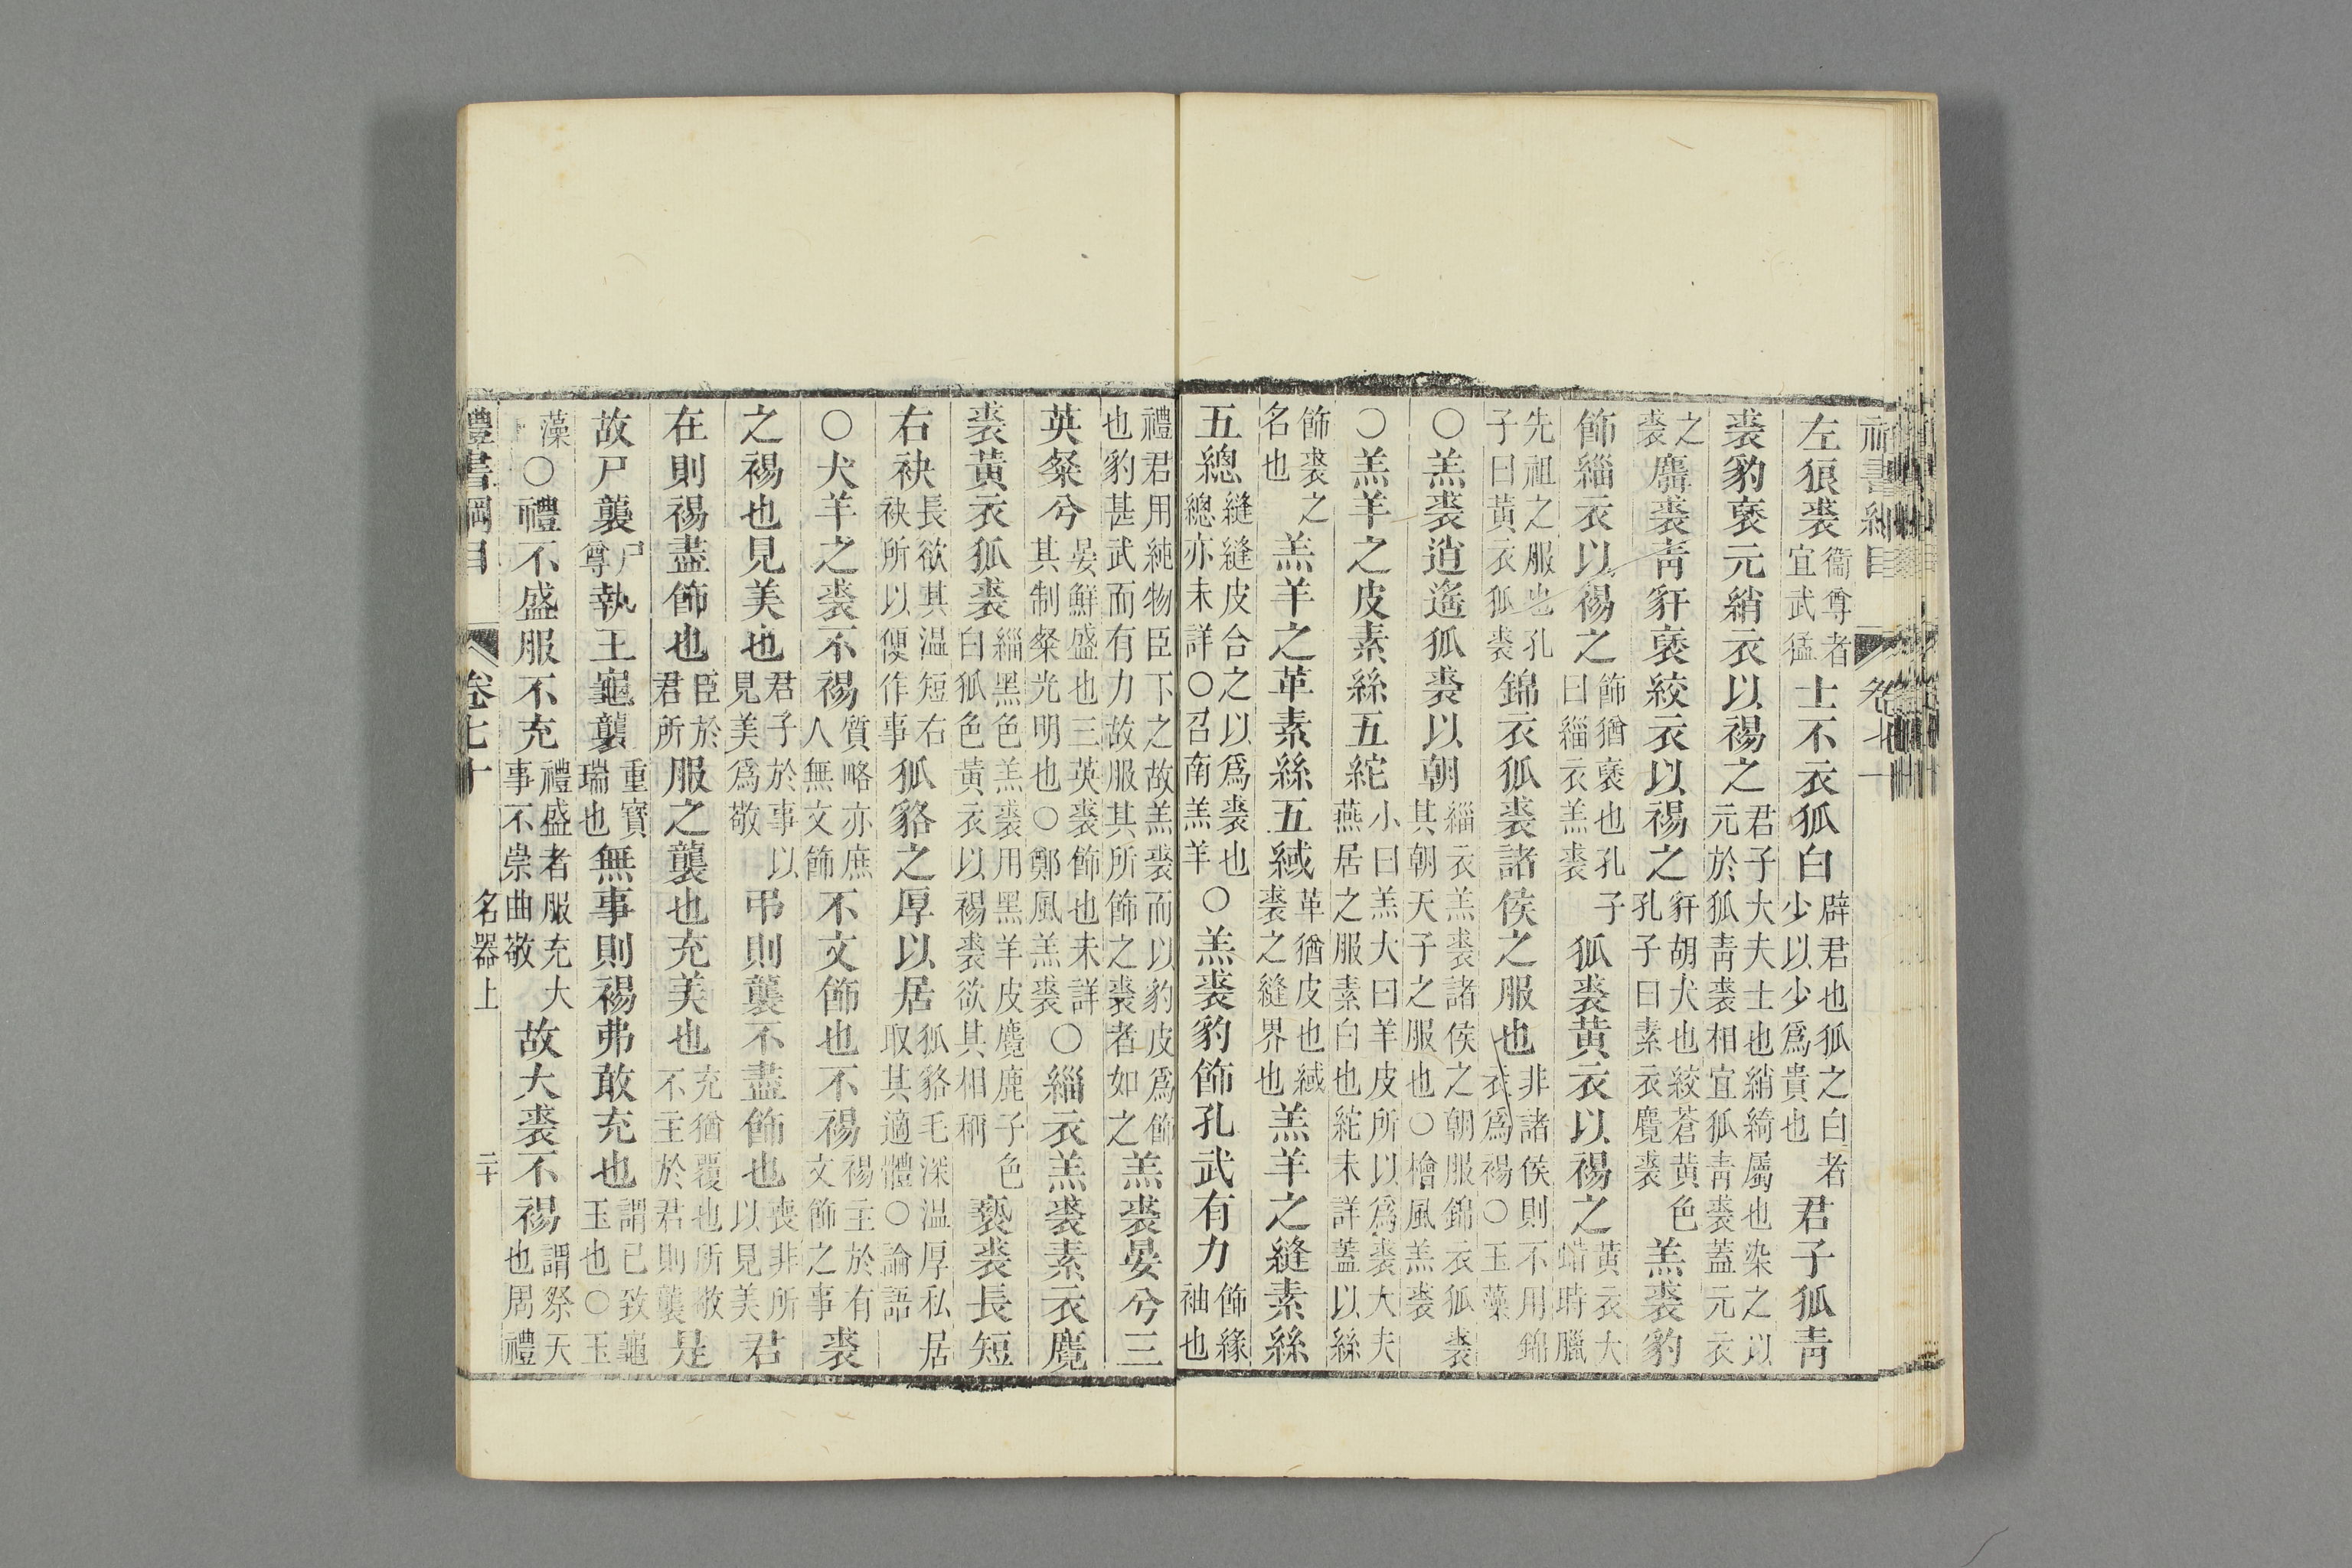 禮書綱目　卷七十
左狼裘衞尊者宜武猛士不衣狐白辟君也狐之白者少以少爲貴也君子狐靑
裘豹褎元綃衣以裼之君子大夫士也綃綺屬也染之以元於狐靑裘相宜狐靑裘蓋元衣
之裘麛裘靑豻褎絞衣以裼之豻胡犬也絞蒼黃色孔子曰素衣麑裘羔裘豹
飾緇衣以裼之飾猶褎也孔子曰緇衣羔裘狐裘黃衣以裼之黃衣大蜡時臘
先祖之服也孔子曰黃衣狐裘錦衣狐裘諸侯之服也非諸侯則不用錦衣爲裼○玉藻
○羔裘逍遙狐裘以朝緇衣羔裘諸侯之朝服錦衣狐裘其朝天子之服也○檜風羔裘
○羔羊之皮素絲五紽小曰羔大曰羊皮所以爲裘大夫燕居之服素白也紽未詳蓋以絲
飾裘之名也羔羊之革素絲五緎革猶皮也緎裘之縫界也羔羊之縫素絲
五總縫縫皮合之以爲裘也總亦未詳○召南羔羊○羔裘豹飾孔武有力飾緣袖也
禮君用純物臣下之故羔裘而以豹皮爲飾也豹甚武而有力故服其所飾之裘者如之羔裘晏兮三
英粲兮晏鮮盛也三英裘飾也未詳其制粲光明也○鄭風羔裘○緇衣羔裘素衣麑
裘黃衣狐裘緇黑色羔裘用黑羊皮麑鹿子色白狐色黃衣以裼裘欲其相稱褻裘長短
右袂長欲其溫短右袂所以便作事狐貉之厚以居狐貉毛深溫厚私居取其適體○論語
○犬羊之裘不裼質略亦庶人無文飾不文飾也不裼裼主於有文飾之事裘
之裼也見美也君子於事以見美爲敬弔則襲不盡飾也喪非所以見美君
在則裼盡飾也臣於君所服之襲也充美也充猶覆也所敬不主於君則襲是
故尸襲尸尊執玉龜襲重寶瑞也無事則裼弗敢充也謂已致龜玉也○玉
藻○禮不盛服不充禮盛者服充大事不崇曲敬故大裘不裼謂祭天也周禮
禮書綱目　卷七十　名器上　二十